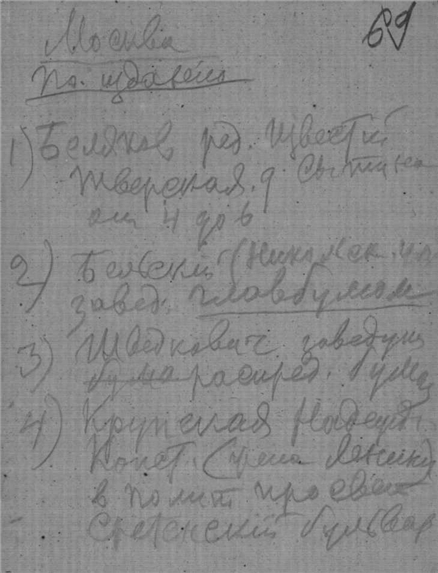 69
Москва
по издател
1) Беляков ред. Известий
Тверская. д Сытина
от 4 до 6
2) Бельский (Никольск.
завед. Главбумом
3) Шведкович заведущ
распред. бумаг
4) Крупская Надежд
Конст. (жена Ленина
в полит просвет
Сретенский бульвар